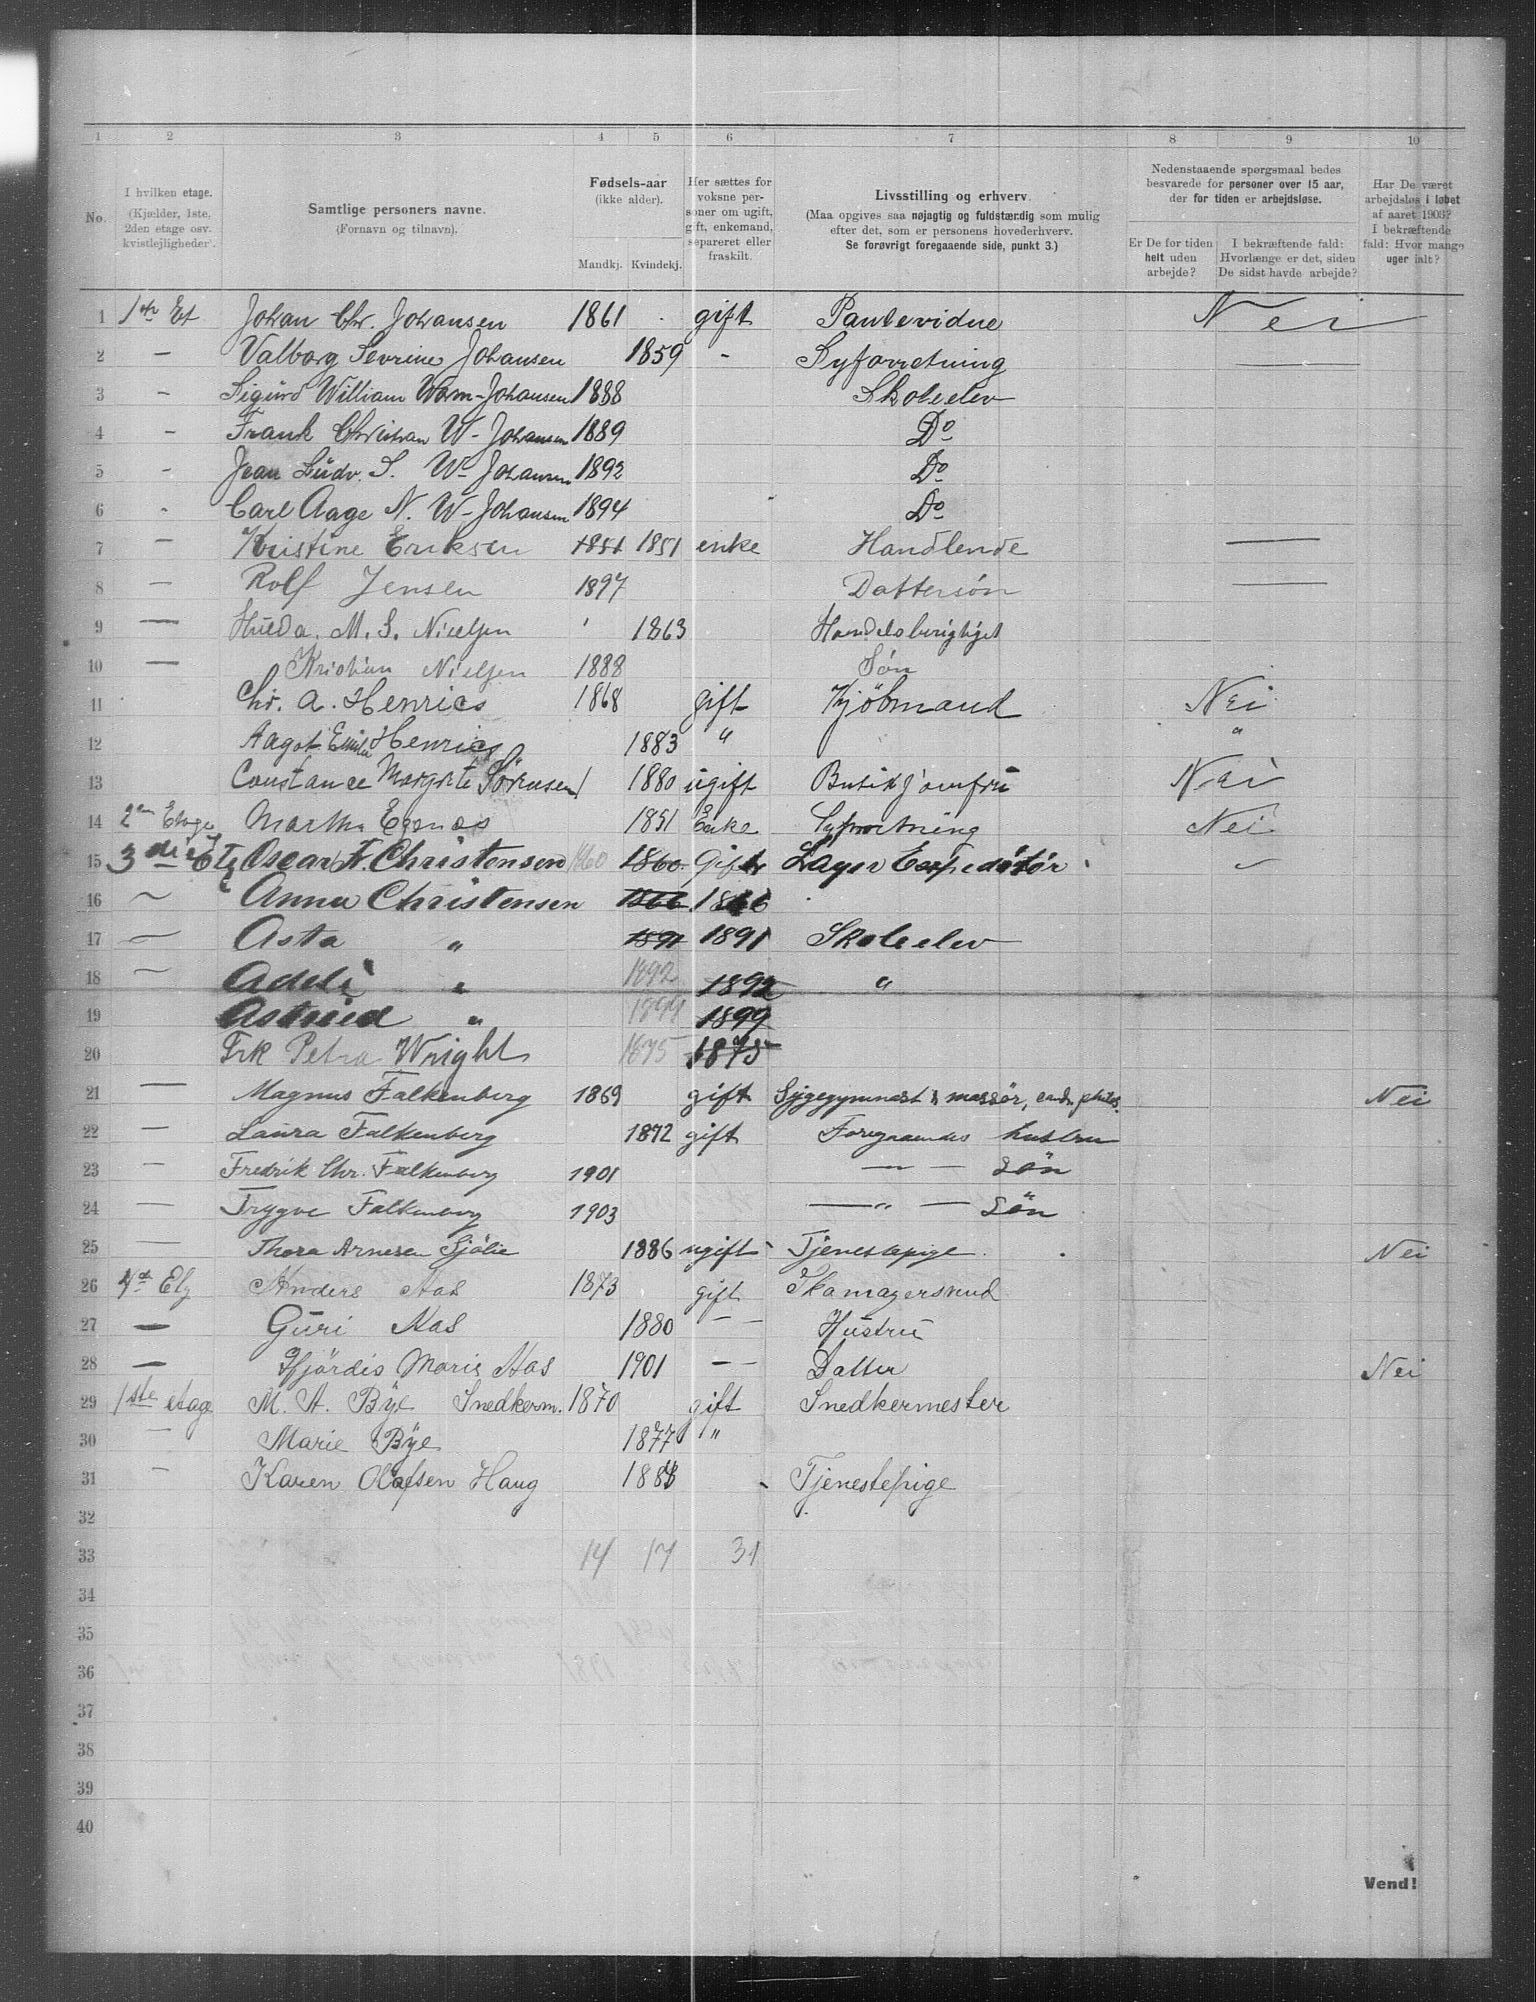 1 2 3 4 5 6 7 8 9 10
No. I hvilken etage. (Kjælder, 1ste, 2den etage osv. kvistlejligheder). Samtlige personers navne. (Fornavn og tilnavn). Fødsels-aar (ikke alder). Mandkj. Kvindekj. Her sættes for voksne personer om ugift, gift, enkemand, separeret eller fraskilt. Livsstilling og erhverv. (Maa opgives saa nøjagtig og fuldstændig som mulig efter det, som er personens hovederhverv. Se forøvrigt foregaaende side, punkt 3.) Nedenstaaende spørgsmaal bedes besvarede for personer over 15 aar, der for tiden er arbejdsløse. Er De for tiden helt uden arbejde? I bekræftende fald: Hvorlænge er det, siden De sidst havde arbejde? Har De været arbejdsløs i løbet af aaret 1903? I bekræftende fald: Hvor mange uger ialt?
1 1ste Et Johan Chr. Johansen 1861 gift Pantevidne Nei
2 — Valborg Sevrine Johansen 1859 - Syforretning —
3 - Sigurd William Warm-Johansen 1888 Skoleelev
4 - Frank Christian W- Johansen 1889 Do
5 - Jean Ludv. S. W- Johansen 1892 Do
6 - Carl Aage N. W- Johansen 1894 Do
7 — Kristine Eriksen 1851 1851 enke Handlende —
8 — Rolf Jensen 1897 Dattersøn —
9 — Hulda. M. S. Nielsen 1863 Handelsberigtiget
10 — Kristian Nielsen 1888 Søn
11 Chr. A. Henrics 1868 gift Kjøbmand Nei
12 Aagot Emilie Henrics 1883 " "
13 Constance Margrete Sörensen 1880 ugift Butikjomfru Nei
14 2en Etage Martha Egenæs 1851 Enke Syforretning Nei
15 3die Etg Oscar Fr. Christensen 1860 1860 Gift Lager Expeditör
16 ~ Anna Christensen 1866 1866
17 — Asta " 1891 1891 Skoleelev
18 ~ Adele " 1892 1892 "
19 Astrid " 1899 1899
20 Frk Petra Wright 1875 1875
21 — Magnus Falkenberg 1869 gift Sygegymnast & massör, cand. philos. Nei
22 — Laura Falkenberg 1872 gift Foregaaendes hustru
23 — Fredrik Chr. Falkenberg 1901 — — sön
24 — Trygve Falkenberg 1903 — " — sön
25 — Thora Arnesen Sjölie 1886 ugift Tjenestepige. Nei
26 4de Etg Anders Aas 1873 gift Skomagersvend
27 — Guri Aas 1880 — — Hustru
28 — Hjördis Marie Aas 1901 — — Datter Nei
29 1ste etage M. A. Bÿe Snedkerm. 1870 gift Snedkermester
30 — Marie Bÿe 1877 "
31 — Karen Olafsen Haug 1888 Tjenestepige
32
33 14 17 31
34
35
36
37
38
39
40
Vend!